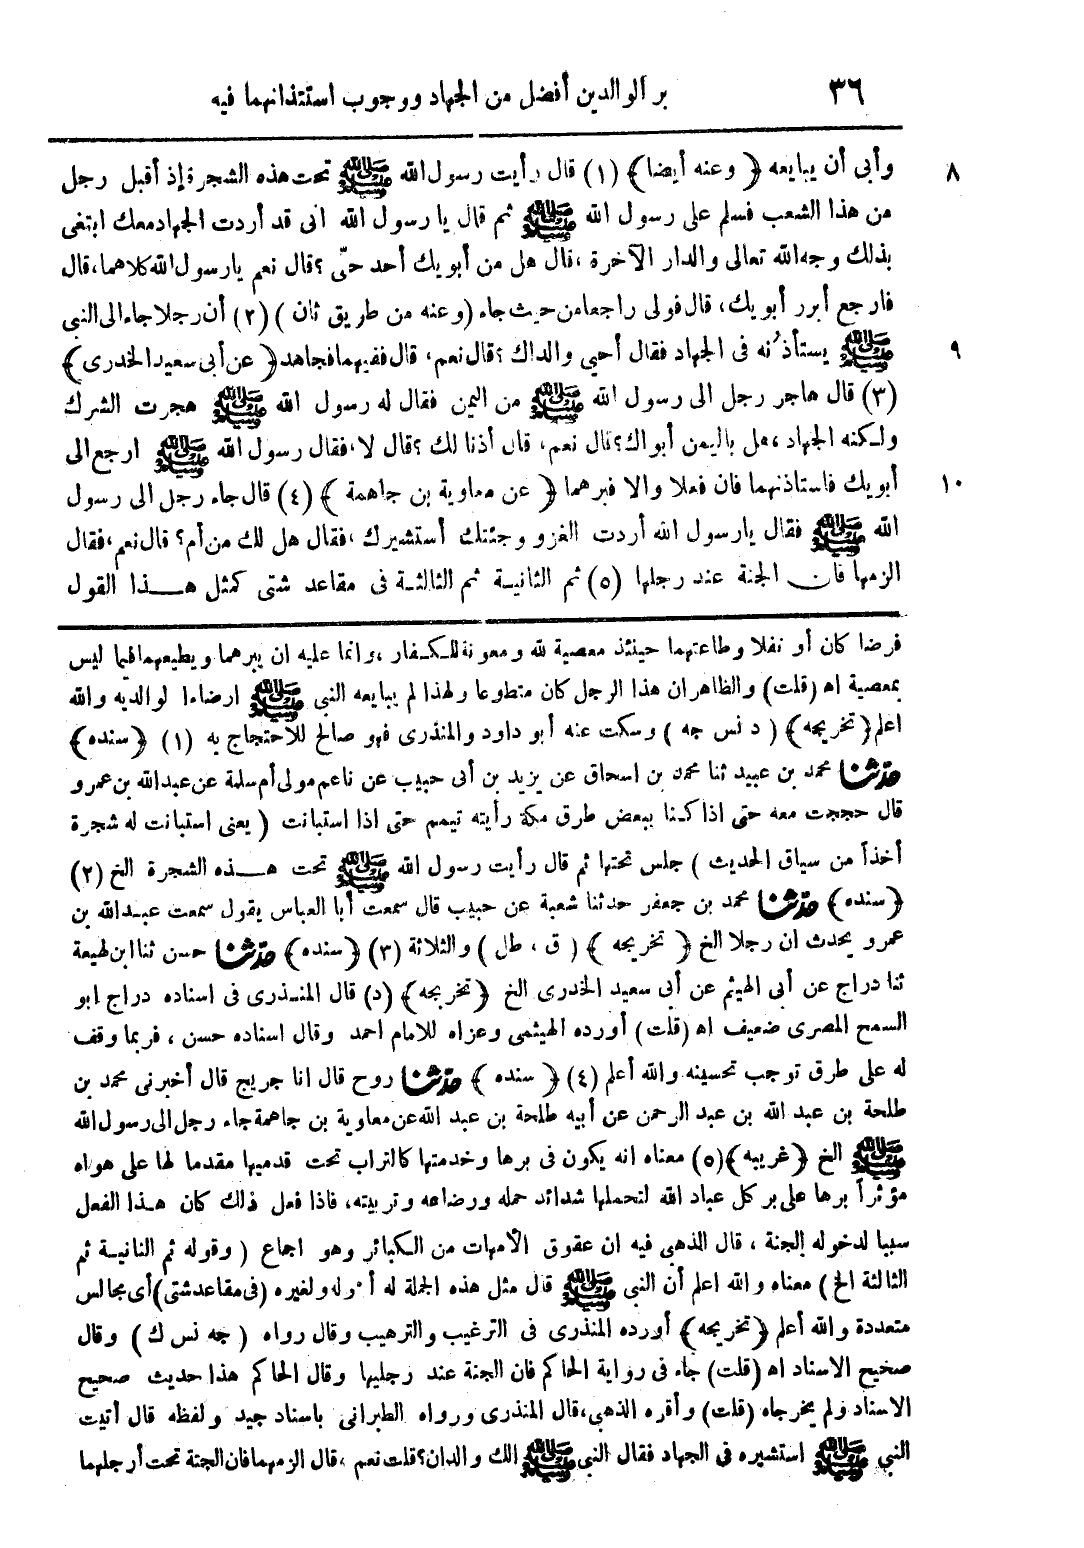 ٣٦ بر الوالدين أفضل من الجهاد ووجوب استئذانهما فيه
٨ وأبى أن يبايعه ﴿ وعنه أيضا﴾ (١) قال رأيت رسول الله ﷺ تحت هذه الشجرة إذ أقبل رجل
من هذا الشعب فسلم على رسول الله ﷺ ثم قال يا رسول الله انى قد أردت الجهاد معك ابتغى
بذلك وجه الله تعالى والدار الآخرة ، قال هل من أبويك أحد حىّ ؟ قال نعم يارسول الله كلاهما، قال
فارجع أبرر أبويك، قال فولى راجعا من حيث جاء (وعنه من طريق ثان ) (٢) أن رجلا جاء الى النبى
٩ ﷺ يستأذنه فى الجهاد فقال أحيى والداك ؟ قال نعم، قال ففيهما فجاهد ﴿ عن أبى سعيد الخدرى﴾
(٣) قال هاجر رجل الى رسول الله ﷺ من اليمن فقال له رسول الله ﷺ هجرت الشرك
ولكنه الجهاد ، هل باليمن أبواك؟ قال نعم، قال أذنا لك ؟ قال لا، فقال رسول الله ﷺ ارجع الى
١٠ أبويك فاستاذنهما فان فعلا والا فبرهما ﴿ عن معاوية بن جاهمة ﴾ (٤) قال جاء رجل الى رسول
الله ﷺ فقال يارسول الله أردت الغزو وجئتك أستشيرك ، فقال هل لك من أم؟ قال نعم، فقال
الزمها فان الجنة عند رجلها (٥) ثم الثانية ثم الثالثة فى مقاعد شتى كمثل هذا القول
فرضا كان أو نفلا وطاعتهما حينئذ معصية لله ومعونة للكفار ، وانما عليه ان يبرهما ويطيعهما فيما ليس
بمعصية اه (قلت) والظاهر ان هذا الرجل كان متطوعا ولهذا لم يبايعه النبى ﷺ ارضاءا لوالديه والله
اعلم ﴿تخريجه﴾ ( د نس جه ) وسكت عنه أبو داود والمنذرى فهو صالح للاحتجاج به (١) ﴿سنده﴾
حدّثنا محمد بن عبيد ثنا محمد بن اسحاق عن يزيد بن أبى حبيب عن ناعم مولى أم سلمة عن عبد الله بن عمرو
قال حججت معه حتى اذا كنا ببعض طرق مكة رأيته تيمم حتى اذا استبانت ( يعنى استبانت له شجرة
أخذاً من سياق الحديث ) جلس تحتها ثم قال رأيت رسول الله ﷺ تحت هذه الشجرة الخ (٢)
﴿سنده﴾ حدّثنا محمد بن جعفر حدثنا شعبة عن حبيب قال سمعت أبا العباس يقول سمعت عبد الله بن
عمرو يحدث ان رجلا الخ ﴿ تخريجه ﴾ ( ق ، طل ) والثلاثة (٣) ﴿سنده﴾ حدّثنا حسن ثنا ابن لهيعة
ثنا دراج عن أبى الهيثم عن أبى سعيد الخدرى الخ ﴿تخريجه﴾ (د) قال المنذرى فى اسناده دراج ابو
السمح المصرى ضعيف اه (قلت) أورده الهيثمى وعزاه للامام احمد وقال اسناده حسن ، فربما وقف
له على طرق توجب تحسينه والله أعلم (٤) ﴿ سنده ﴾ حدّثنا روح قال انا جريج قال أخبرنى محمد بن
طلحة بن عبد الله بن عبد الرحمن عن أبيه طلحة بن عبد الله عن معاوية بن جاهمة جاء رجل الى رسول الله
ﷺ الخ ﴿غريبه﴾ (٥) معناه انه يكون فى برها وخدمتها كالتراب تحت قدميها مقدما لها على هواه
مؤثراً برها على بر كل عباد الله لتحملها شدائد حمله ورضاعه وتربيته، فاذا فعل ذلك كان هذا الفعل
سببا لدخوله الجنة ، قال الذهبى فيه ان عقوق الأمهات من الكبائر وهو اجماع ( وقوله ثم الثانية ثم
الثالثة الخ ) معناه والله اعلم أن النبى ﷺ قال مثل هذه الجملة له أو له ولغيره (فى مقاعد شتى) أى مجالس
متعددة والله أعلم ﴿تخريجه﴾ أورده المنذرى فى الترغيب والترهيب وقال رواه ( جه نس ك ) وقال
صحيح الاسناد اه (قلت) جاء فى رواية الحاكم فان الجنة عند رجليها وقال الحاكم هذا حديث صحيح
الاسناد ولم يخرجاه (قلت) وأقره الذهبى، قال المنذرى ورواه الطبرانى باسناد جيد ولفظه قال أتيت
النبى ﷺ استشيره فى الجهاد فقال النبى ﷺ الك والدان؟ قلت نعم ، قال الزمهما فان الجنة تحت أرجلهما